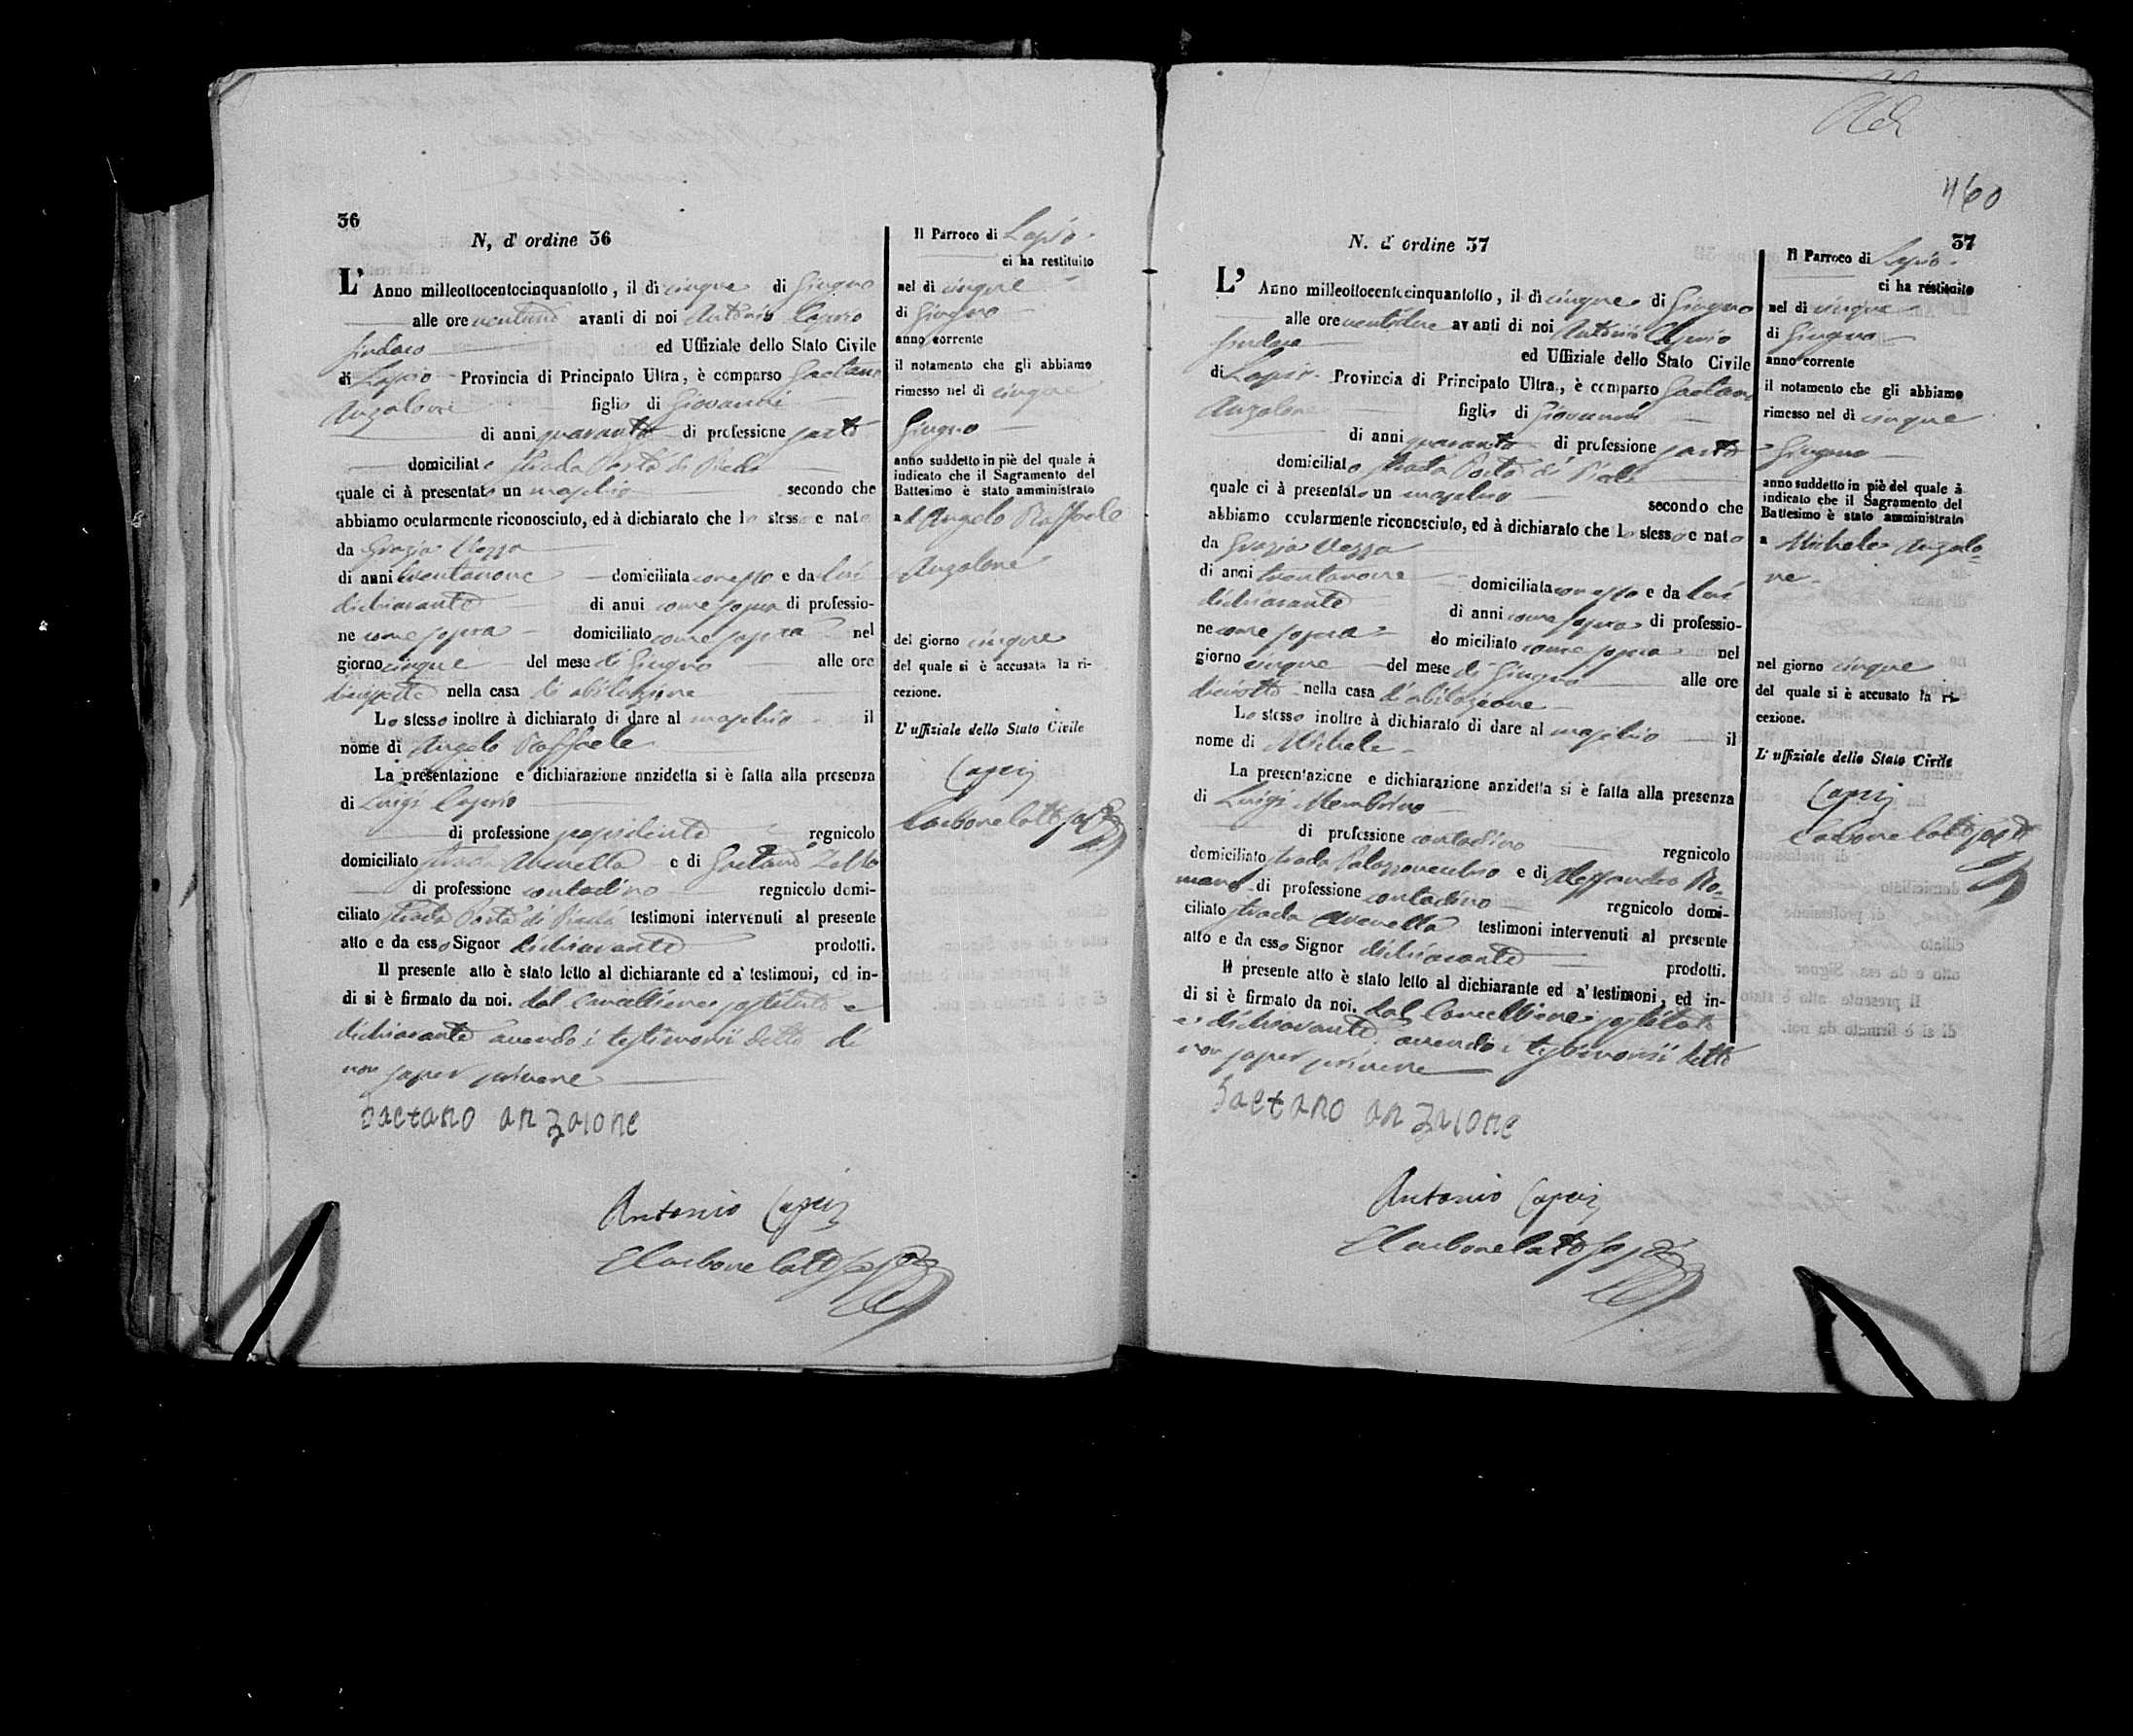 36
N, d' ordine 36
L' Anno milleottocentocinquantotto, il dì cinque di Giugno
alle ore ventuno avanti di noi Antonio Caprio
Sindaco ed Uffiziale dello Stato Civile
di Lapio Provincia di Principato Ultra, è comparso Gaetano
Anzalone figlio di Giovanni
di anni quaranta di professione sarto
domiciliato strada Porta di
quale ci à presentato un maschio secondo che
abbiamo ocularmente riconosciuto, ed à dichiarato che lo stesso e nato
da Grazia
di anni trentanove domiciliata con esso e da lui
dichiarante di anni come sopra di professio-
ne come sopra domiciliato come sopra nel
giorno cinque del mese di Giugno alle ore
diciasette nella casa di abitazione
Lo stesso inoltre à dichiarato di dare al maschio il
nome di Angelo Raffaele
La presentazione e dichiarazione anzidetta si è fatta alla presenza
di Luigi Caprio
di professione regnicolo
domiciliato strada Avenella e di Gaetano
di professione contadino regnicolo domi-
ciliato strada Porta di testimoni intervenuti al presente
atto e da esso Signor dichiarante prodotti.
Il presente atto è stato letto al dichiarante ed a' testimoni, ed in-
di si è firmato da noi. dal Cancelliere sostituto e
dichiarante avendo i testimonii detto di
non saper scrivere
Gaetano anzalone
Antonio Caprio
Il Parroco di Lapio
ci ha restituito
nel dì cinque
di Giugno
anno corrente
il notamento che gli abbiamo
rimesso nel dì cinque
Giugno
anno suddetto in piè del quale à
indicato che il Sagramento del
Battesimo è stato amministrato
ad Angelo Raffaele
Anzalone
del giorno cinque
del quale si è accusata la ri-
cezione.
L' uffiziale dello Stato Civile
Caprio
460
37
N. d' ordine 37
L' Anno milleottocentocinquantotto, il dì cinque di Giugno
alle ore ventidue avanti di noi Antonio Caprio
Sindaco ed Uffiziale dello Stato Civile
di Lapio Provincia di Principato Ultra, è comparso Gaetano
Anzalone figlio di Giovanni
di anni quaranta di professione sarto
domiciliato strada Porta di
quale ci à presentato un maschio secondo che
abbiamo ocularmente riconosciuto, ed à dichiarato che lo stesso e nato
da Grazia
di anni trentanove domiciliata con esso e da lui
dichiarante di anni come sopra di professio-
ne come sopra do miciliato come sopra nel
giorno cinque del mese di Giugno alle ore
diciotto nella casa d'abitazione
Lo stesso inoltre à dichiarato di dare al maschio il
nome di Michele
La presentazione e dichiarazione anzidetta si è fatta alla presenza
di Luigi Membrino
di professione contadino regnicolo
domiciliato strada Palazzovecchio e di Alessandro Ro=
mano di professione contadino regnicolo domi-
ciliato strada Avenella testimoni intervenuti al presente
atto e da esso Signor dichiarante prodotti.
Il presente atto è stato letto al dichiarante ed a' testimoni, ed in-
di si è firmato da noi. dal Cancelliere sostituto
e dichiarante, avendo i testimonii detto
non saper scrivere
Gaetano anzalone
Antonio Caprio
Il Parroco di Lapio
ci ha restituito
nel dì cinque
di Giugno
anno corrente
il notamento che gli abbiamo
rimesso nel dì cinque
Giugno
anno suddetto in piè del quale à
indicato che il Sagramento del
Battesimo è stato amministrato
a Michele Anzalo=
ne
nel giorno cinque
del quale si è accusato la ri-
cezione.
L' uffiziale dello Stato Civile
Caprio